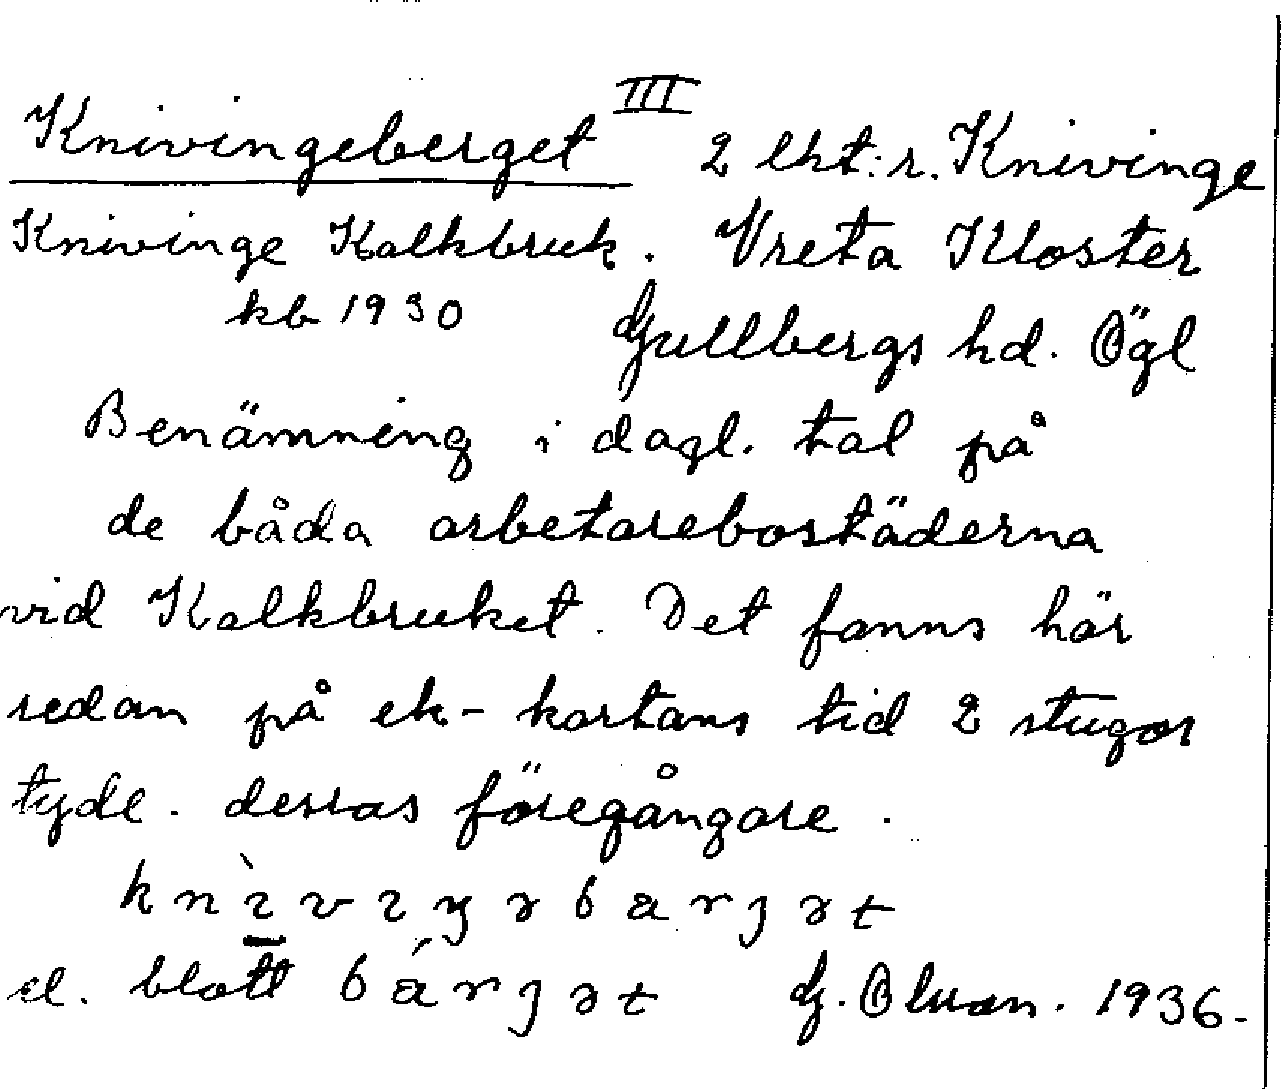 III
Knivingeberget 2 lht:r. Knivinge
Knivinge Kalkbruk. Vreta Kloster
kb 1930 Gullbergs hd. Ögl
Benämning i dagl. tal på
de båda arbetarebostäderna
vid Kalkbruket. Det fanns här
redan på ek-kartans tid 2 stugor
tydl. deras föregångare.
el. blott G. Olsson. 1936.